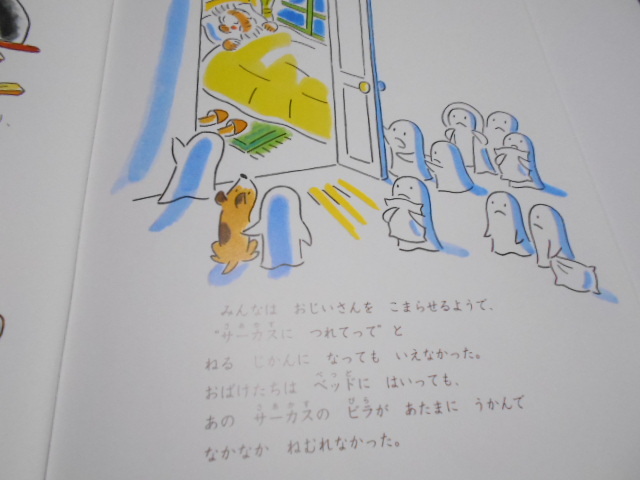 みんなは おじいさんを こまらせるようで、
“サーカスに つれてって”と
ねる じかんに なっても いえなかった。
おばけたちは ベッドに はいっても、
あの サーカスの ビラが あたまに うかんで
なかなか ねむれなかった。